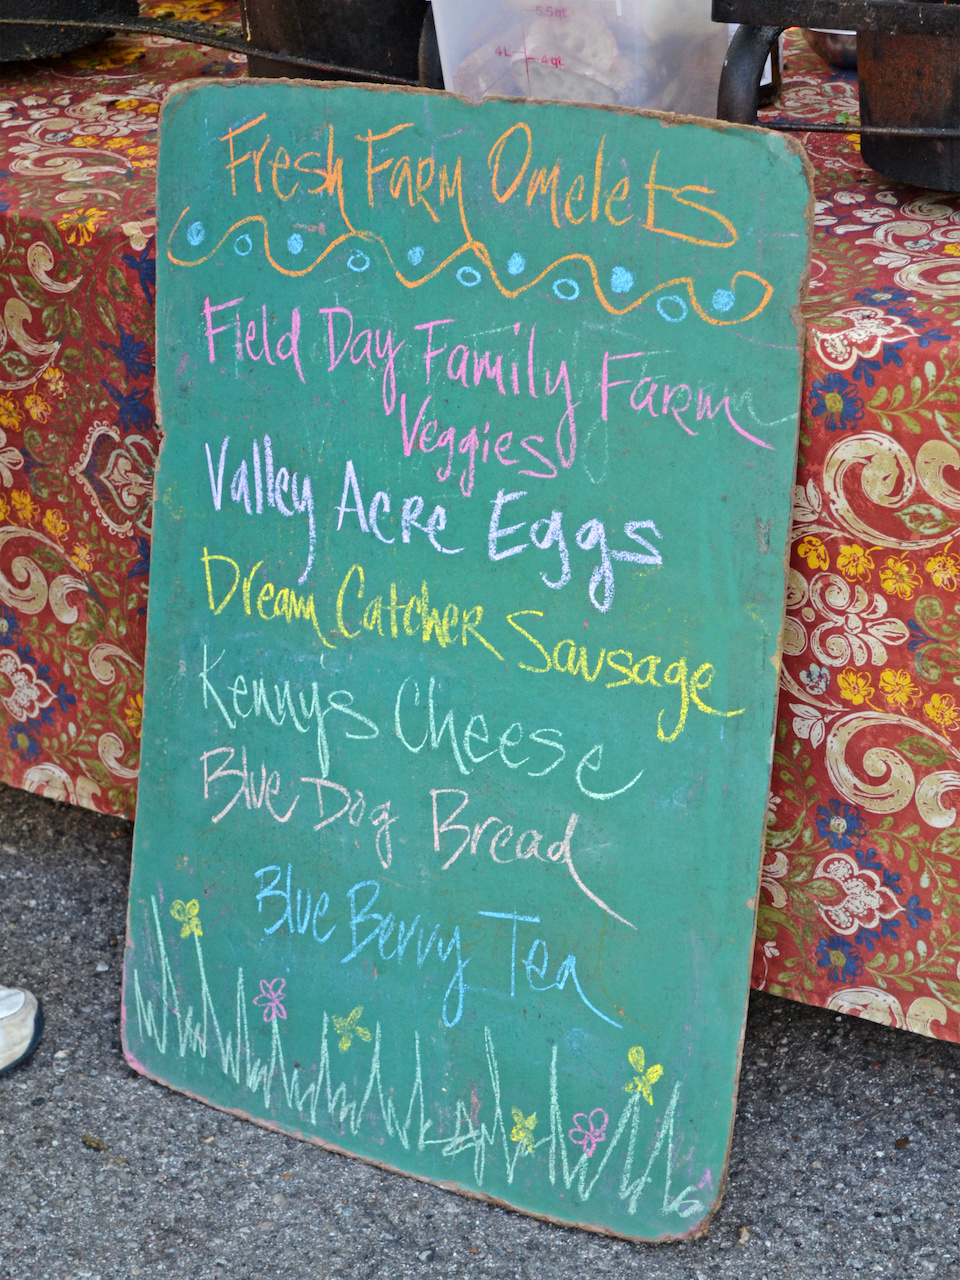 5.5qt
4L 4qt
Fresh Farm Omelets
Field Day Family Farm
Veggies
Valley Acre Eggs
Dream Catcher Sausage
Kenny's Cheese
Blue Dog Bread
Blue Berry Tea